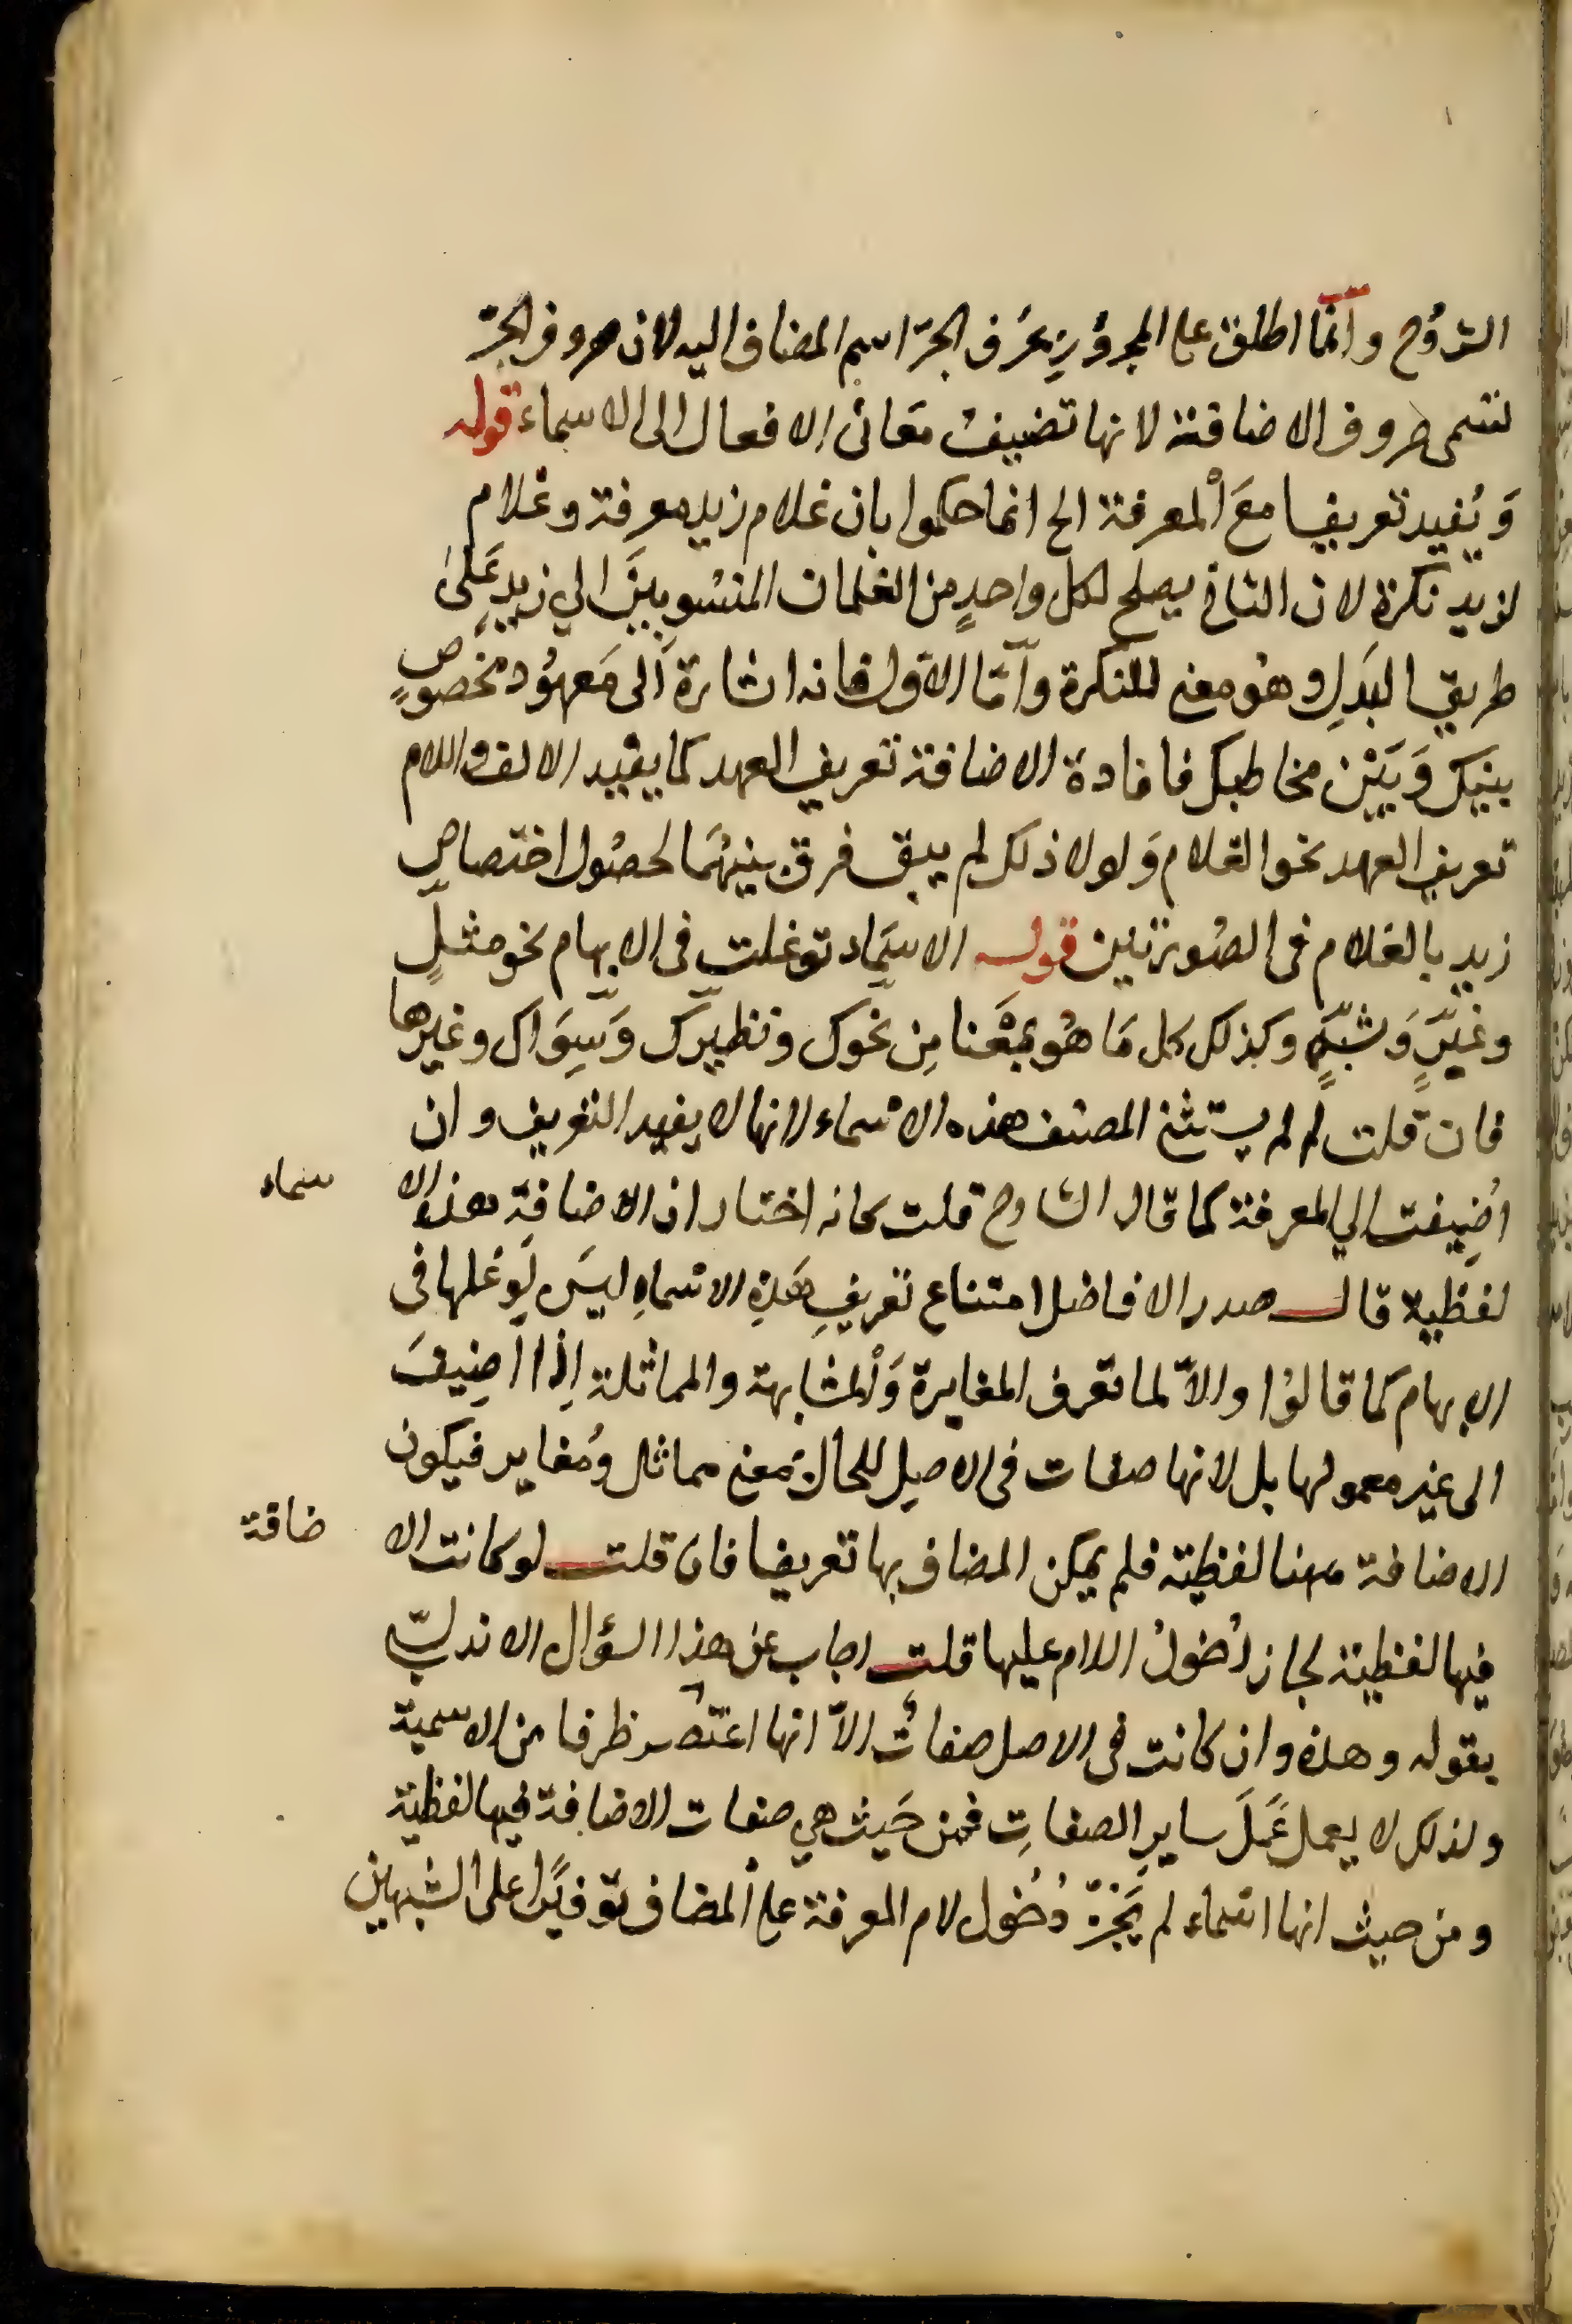 الشروح وانّما اطلق على المجرورِ بحَرف الجرّ اسم المضاف اليه لان حروف الجرّ
تسمى حروف الاضافة لانها تضيفُ مَعانى الافعال الى الاسماء قوله
وَيُفيد تعريفا مَعَ المعرفة الخ انما حكموا بان غلام زيد معرفة وغلام
لزيد نكرة لان الثانى يصلح لكل واحدٍ من الغلمان المنسُوبينَ الي زيدٍ عَلىٰ
طريق البَدَلِ وهوُ معنى للنكرة وامّا الاوّل فانه اشارة الىَ مَعهوُد مخصُوصٍ
بينك وَبَيْن مخاطبك فافادة الاضافة تعريف العهد كما يفيد الالف واللام
تعريف العهد نحو الغلام وَلولا ذلك لم يبق فرق بينهُمَا لحصُول اختصاصِ
زيد بالغلام فى الصُورتين قوله الا سيماد توغلت فى الابهام نحو مثلٍ
وغيَرٍ وَشبَهٍ وكذلك كل مَا هوُ بمعْنَا مِن نحوك ونظيرك وَسِوَاك وغيرها
فان قلت لم لم يستثن المصنف هذه الاسماء لانها لا يفيد التعريف وان
اُضِيفت الي المعرفة كما قال الشارح قلت كانه اختار ان الاضافة هذه الا سماء
لفظية قال صدر الافاضل امتناع تعريفِ هَذِهِ الاسماءِ ليسَ لِتوَغلها فى
الابهام كما قالوُا والاّ لما تعرف المغايرة وَالمشابهة والمماثلة اِذا اضِيفَ
الى غير معمولها بل لانها صفات فى الاصل للحال بمَعنى مماثل وُمغاير فيكون
الاضافة ههنا لفظيّة فلم يمكن المضاف بها تعريفا فان قلت لو كانت الا ضافة
فيها لفظية لجاز دُخولُ اللام عليها قلت اجاب عن هذا السؤال الاندلسى
بقوله وهذه وان كانت فى الاصل صفاتُ الاّ انها طرفا من الاسمية
ولذلك لا يعمل عَمَلَ سايرِ الصفاتِ فمن حَيث هي صفات الاضافة فيها لفظيّة
ومن حيث انها اسماء لم يَجُزْ دُخُول لام المعرفة على المضاف توفيًرا على الشبهين